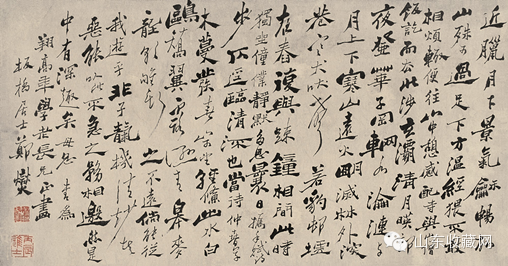 近臘月下景氣龢暢故
山殊可過足下方温經猥不敢
相煩輒便往山中憩感配寺與山僧
飯訖而去北涉玄灞清月映郭
夜登華子岡輞水淪漣與
月上下寒山遠火明滅林外深
巷寒犬吠聲若豹邨墟
夜舂復與疎鐘相間此時
獨坐僮僕靜默多思曩日攜手賦詩
步仄逕臨清流也當待仲春草
木蔓發春山可望輕鯈出水白
鷗矯翼露濕青皋麥
隴朝雊斯之不遠倘能從
我遊乎非子天機清妙者
豈能以不急之務相邀然是
中有深趣矣無忽書爲
翔高年學老長兄正
板橋居士鄭燮
山东收藏网